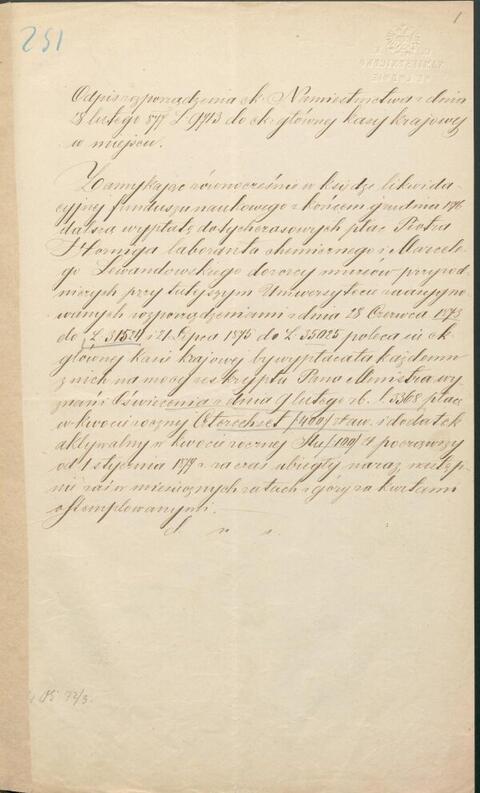 251
1
Odpis rozporządzenia ck. Namiestnictwa z dnia
28 lutego 877 L 9713 do ck. głównej kasy krajowej
w miejscu.
Zamykając równocześnie w księdze likwida-
cyjnej funduszu naukowego z końcem grudnia 1876
dalszą wypłatę dotychczasowych płac Piotra
Horniga laboranta chemicznego i Marcele-
go Lewandowskiego dozorcy muzeów przyrod-
niczych przy tutejszym Uniwersytecie zaasygno-
wanych rozporządzeniami z dnia 28 Czerwca 1873
do L. 31524 i 21 Lipca 1875 do L. 35025 poleca się ck.
głównej kasie krajowej by wypłacała każdemu
z nich na mocy reskryptu Pana Ministra wy-
znań i Oświecenia z dnia 9 lutego r.b. l. 5368 płacę
w kwocie rocznej Czterechset /400/ zł aw. i dodatek
aktywalny w kwocie rocznej Stu /100/ zł począwszy
od 1 stycznia 1877 r. za czas ubiegły naraz, następ-
nie zaś w miesięcznych ratach z góry za kwitami
ostemplowanymi.
72/3.